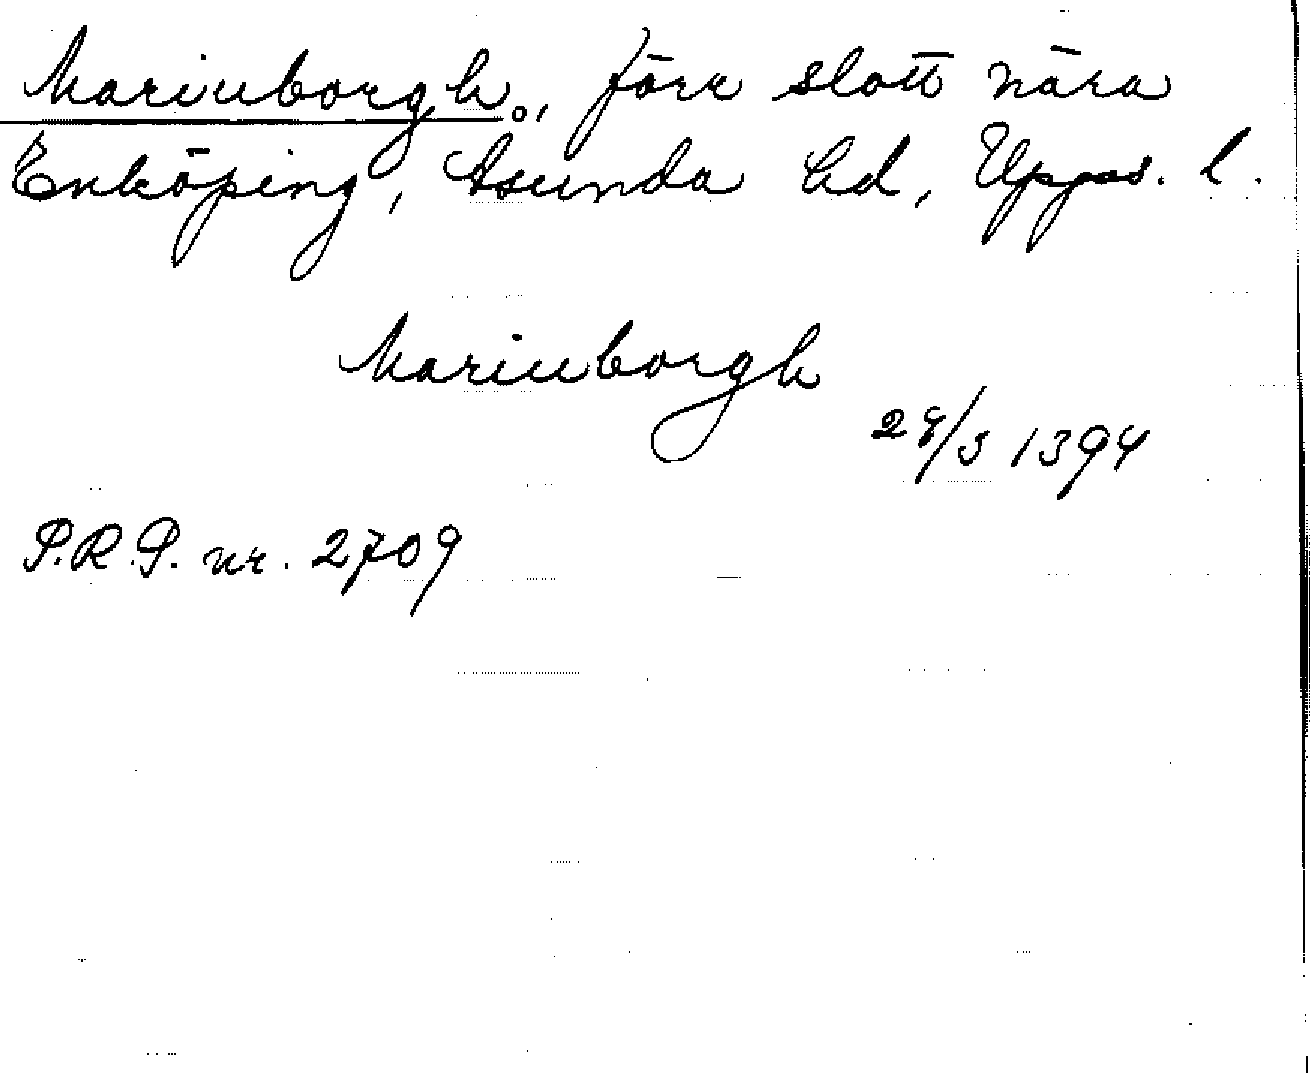 Marinborgh., förr slott nära
Enköping, Åsunda hd, Upps. l.
Marinborgh
28/5 1394
S.R.P. nr. 2709